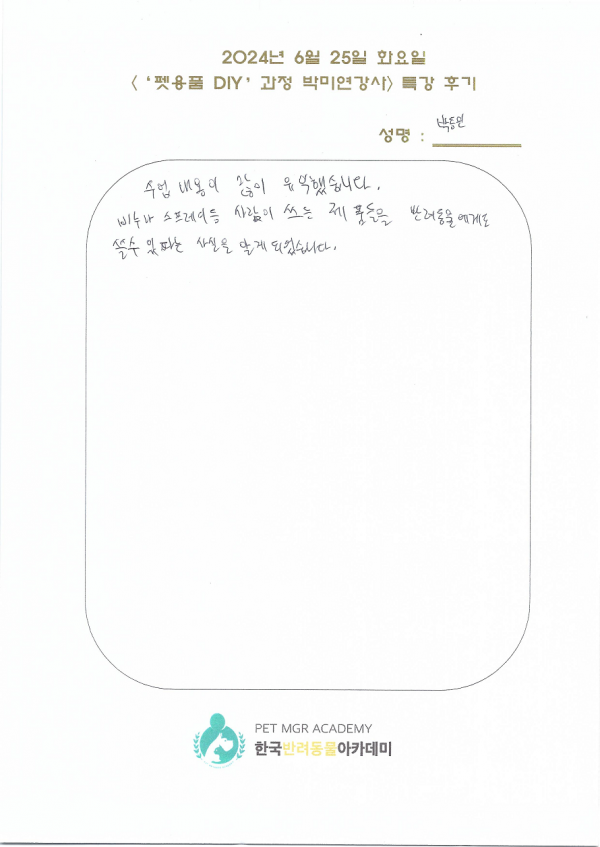 2024년 6월 25일 화요일
< '펫용풀 DIY' 과정 박미연강사> 특강 후기
성명 :
수업 내용이 많이 유익했습니다.
비누나 스프레이등 사람이 쓰는 제품들을 반려동물에게도
쓸수 있다는 사실을 알게 되었습니다.
PET MGR ACADEMY
한국반려동물아카데미